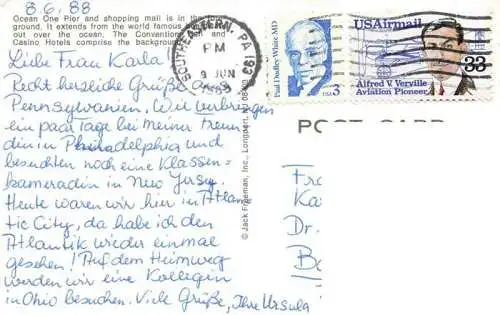 8.6.88
Ocean One Pier and shopping mall is in the
ground. It extends from the world famous
out over the ocean. The Convention
Casino Hotels comprise the background
Liebe Frau Karla!
Recht herzliche Grüße
Pennsylvanien. Wir verbringen
ein paar Tage bei meiner Freun
din in Philadelphia und
besuchten noch eine Klassen=
kameradin in New Jersey.
Heute waren wir hier in Atlan
tic City, da habe ich den
Atlantik wieder einmal
gesehen! Auf dem Heimweg
werden wir eine Kollegin
in Ohio besuchen. Viele Grüße, Ihre Ursula
SOUTHEASTERN, PA 193
PM
9 JUN
Paul Dudley White MD
USA 3
USAirmail
33
Alfred V. Verville
Aviation Pioneer
POST CARD
© Jack Freeman, Inc., Longport, NJ 08403
Fra
Ka
Dr.